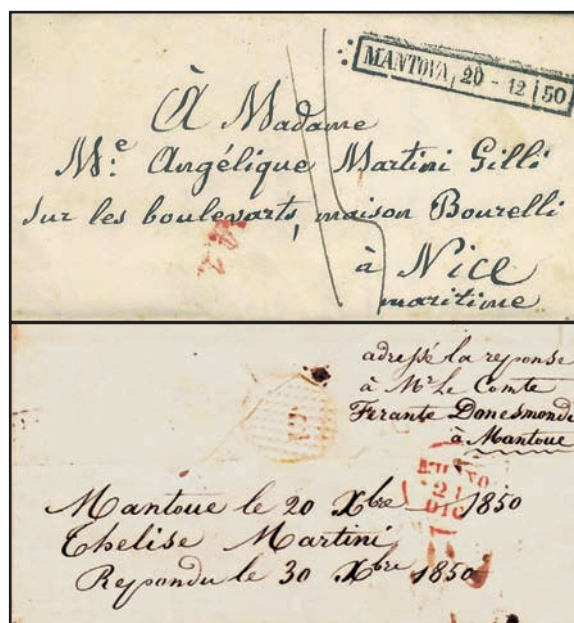 MANTOVA 20 - 12 50
À Madame
M.e Angélique Martini Gilli
sur les boulevarts, maison Bourelli
à Nice
maritime
adressé la reponse
à Mr Le Comte
Ferante Donesmondi
à Mantoue
21
DIC
Mantoue le 20 Xbre 1850
Thelise Martini
Repondu le 30 Xbre 1850